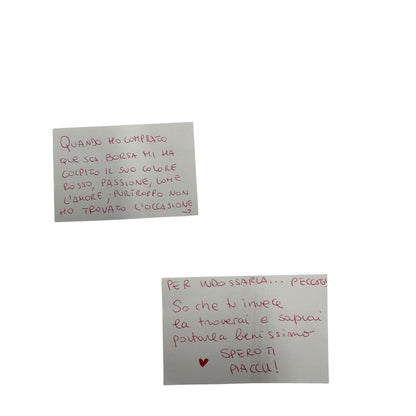 QUANDO HO COMPRATO
QUESTA BORSA MI HA
COLPITO IL SUO COLORE
ROSSO, PASSIONE, COME
L'AMORE; PURTROPPO NON
HO TROVATO L'OCCASIONE
→
PER INDOSSARLA... PECCATO
So che tu invece
la troverai e saprai
portarla benissimo
♥ SPERO TI
PIACCIA!